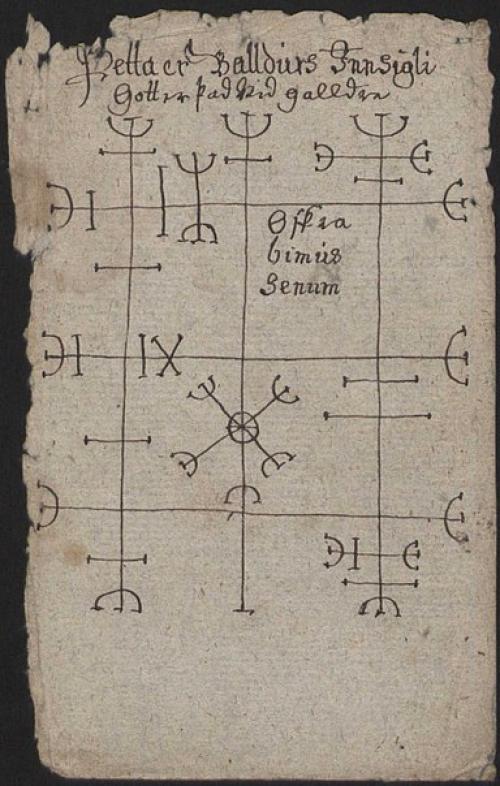 Þetta er Balldurs Innsigli
Gott er þad vid galldre
Offra
bimus
Senum